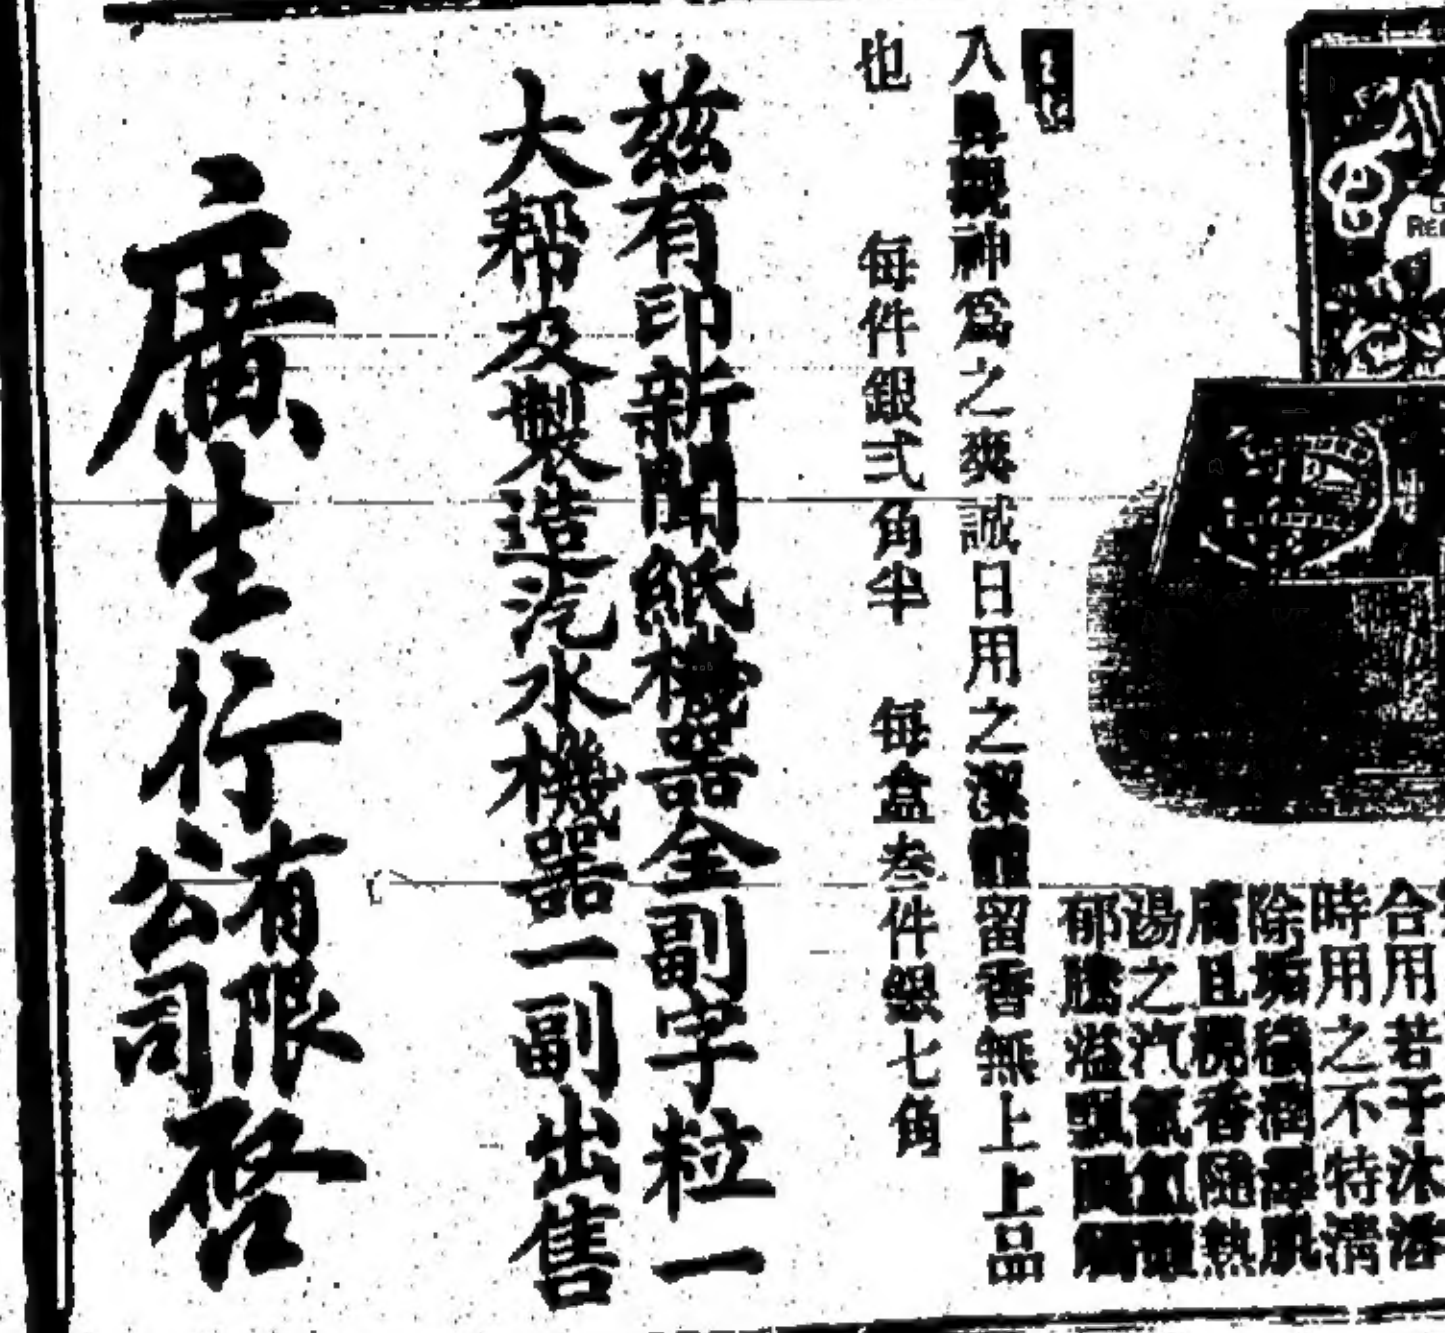 合用若于沐浴
時用之不特清
除垢穢潤澤肌
膚且覺香隨熱
湯之汽氤氳
郁騰溢飄
入鼻觀神為之爽誠日用之潔體留香無上上品
也 每件銀弍角半 每盒叁件銀七角
茲有印新聞紙機器全副字粒一
大帮及製造汽水機器一副出售
廣生行有限公司啓